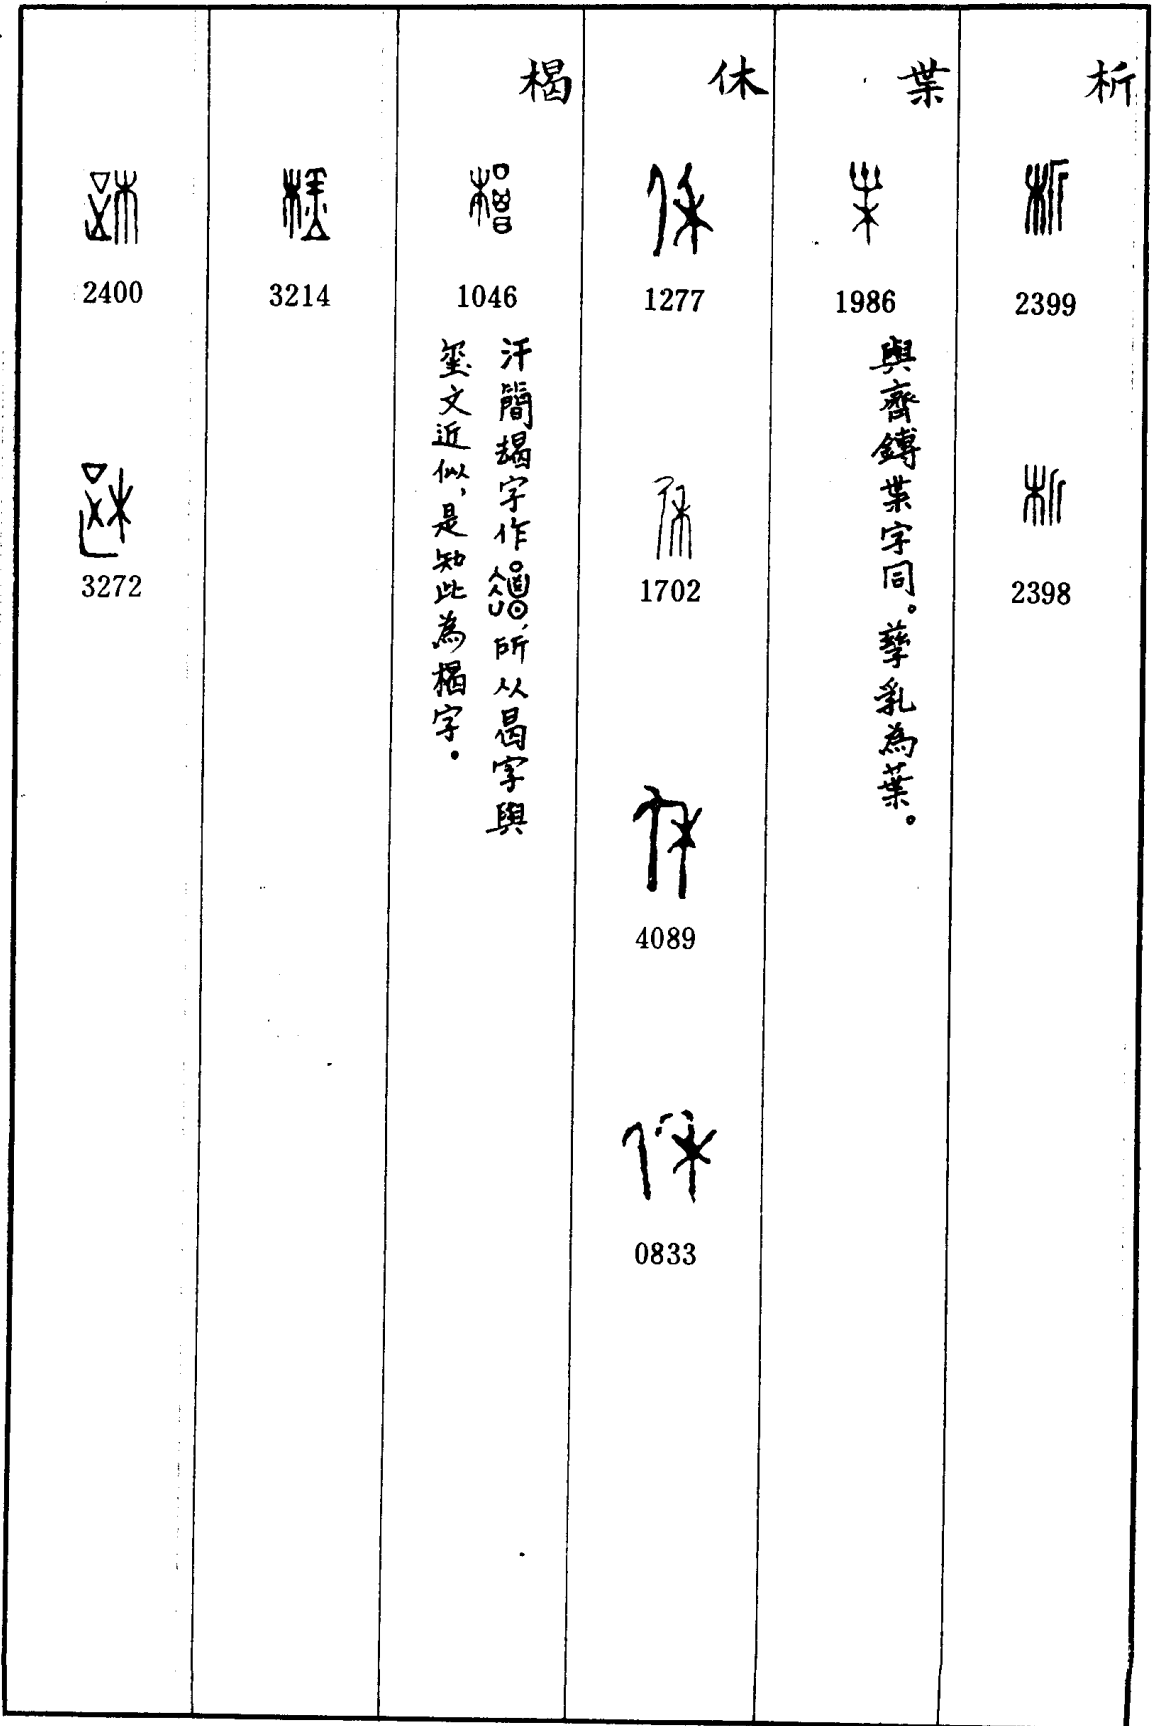 析
2399
2398
枼
1986
與齊鎛枼字同。孳乳為葉。
休
1277
1702
4089
0833
楬
1046
汗簡朅字作,所从曷字與
璽文近似,是知此為楬字。
3214
2400
3272